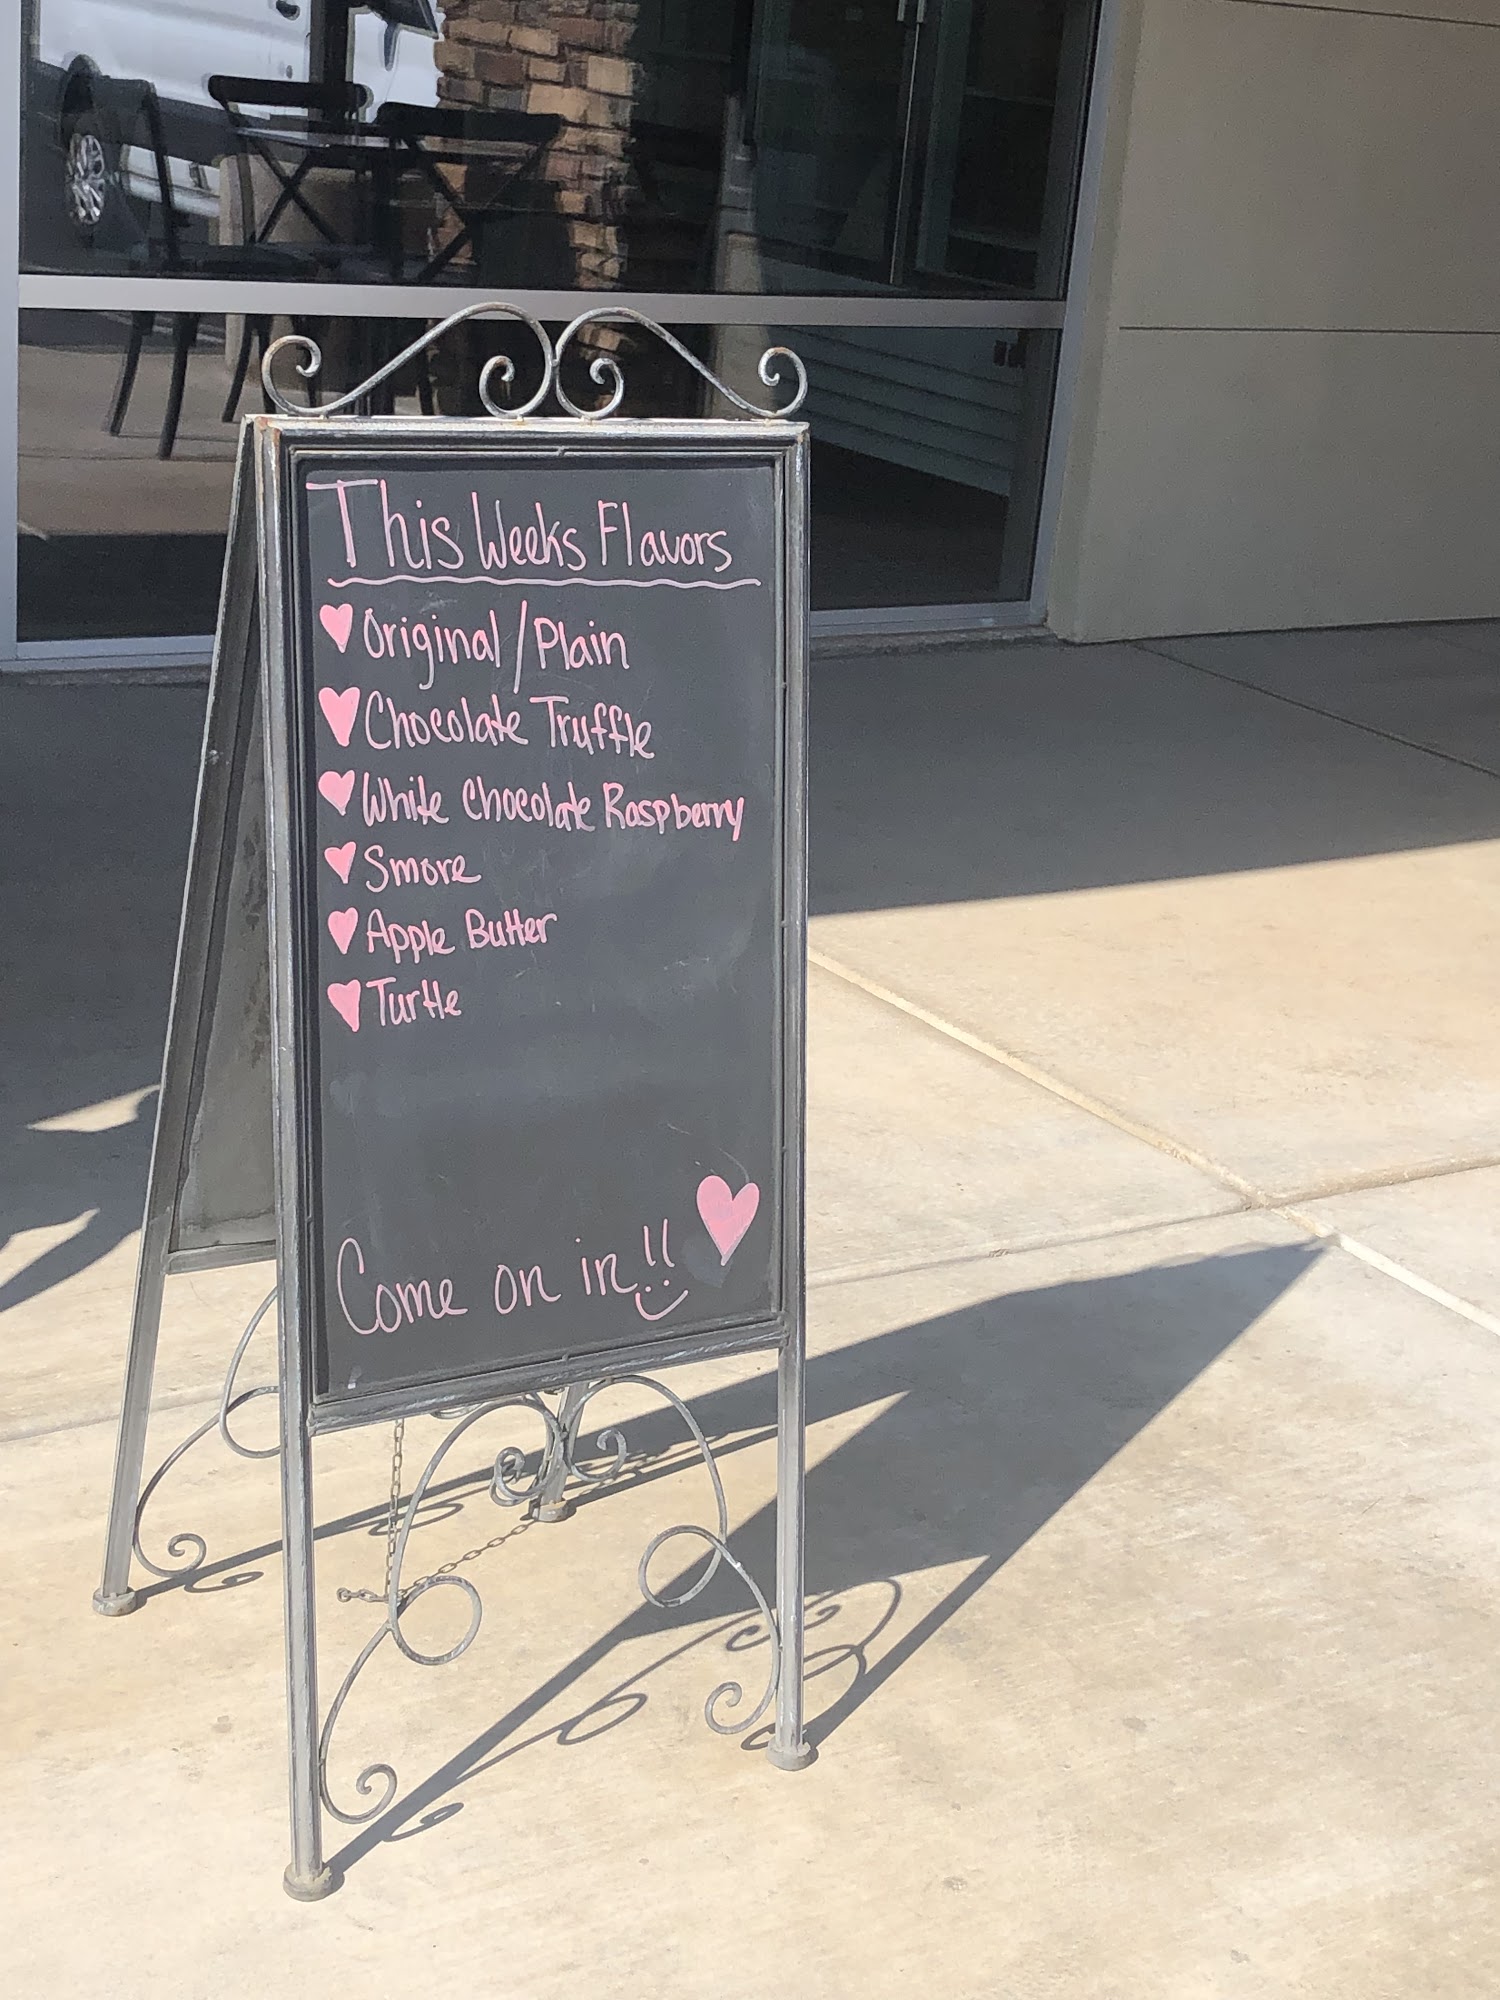 This Weeks Flavors
Original/Plain
Chocolate Truffle
White Chocolate Raspberry
Smore
Apple Butter
Turtle
Come on in!!